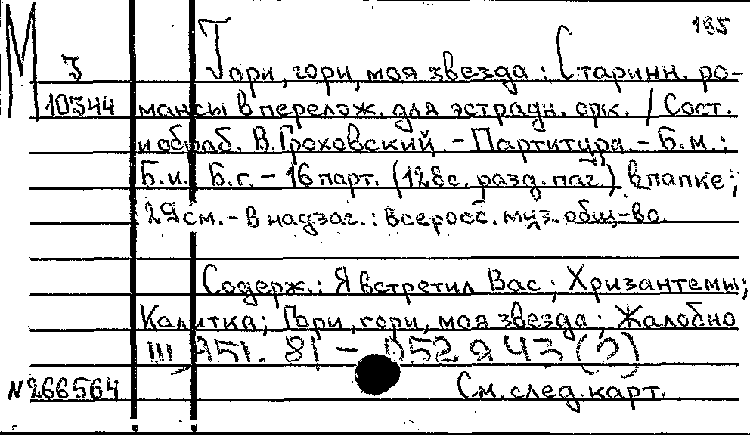 М
185
3 Гори, гори, моя звезда : Старинн. ро-
10344 мансы в перелож. для эстрадн. орк. / Сост.
и обраб. В. Гроховский. - Партитура. - Б. м. :
Б. и. Б. г. - 16 парт. (128с. разд. паг.) в папке;
29 см. - В надзаг. : Всеросс. муз. общ-во.
Содерж. : Я встретил Вас ; Хризантемы;
Калитка ; Гори, гори, моя звезда ; Жалобно
Ш, А51. 81 - 052 я 43 (2)
N 266564 См. след. карт.